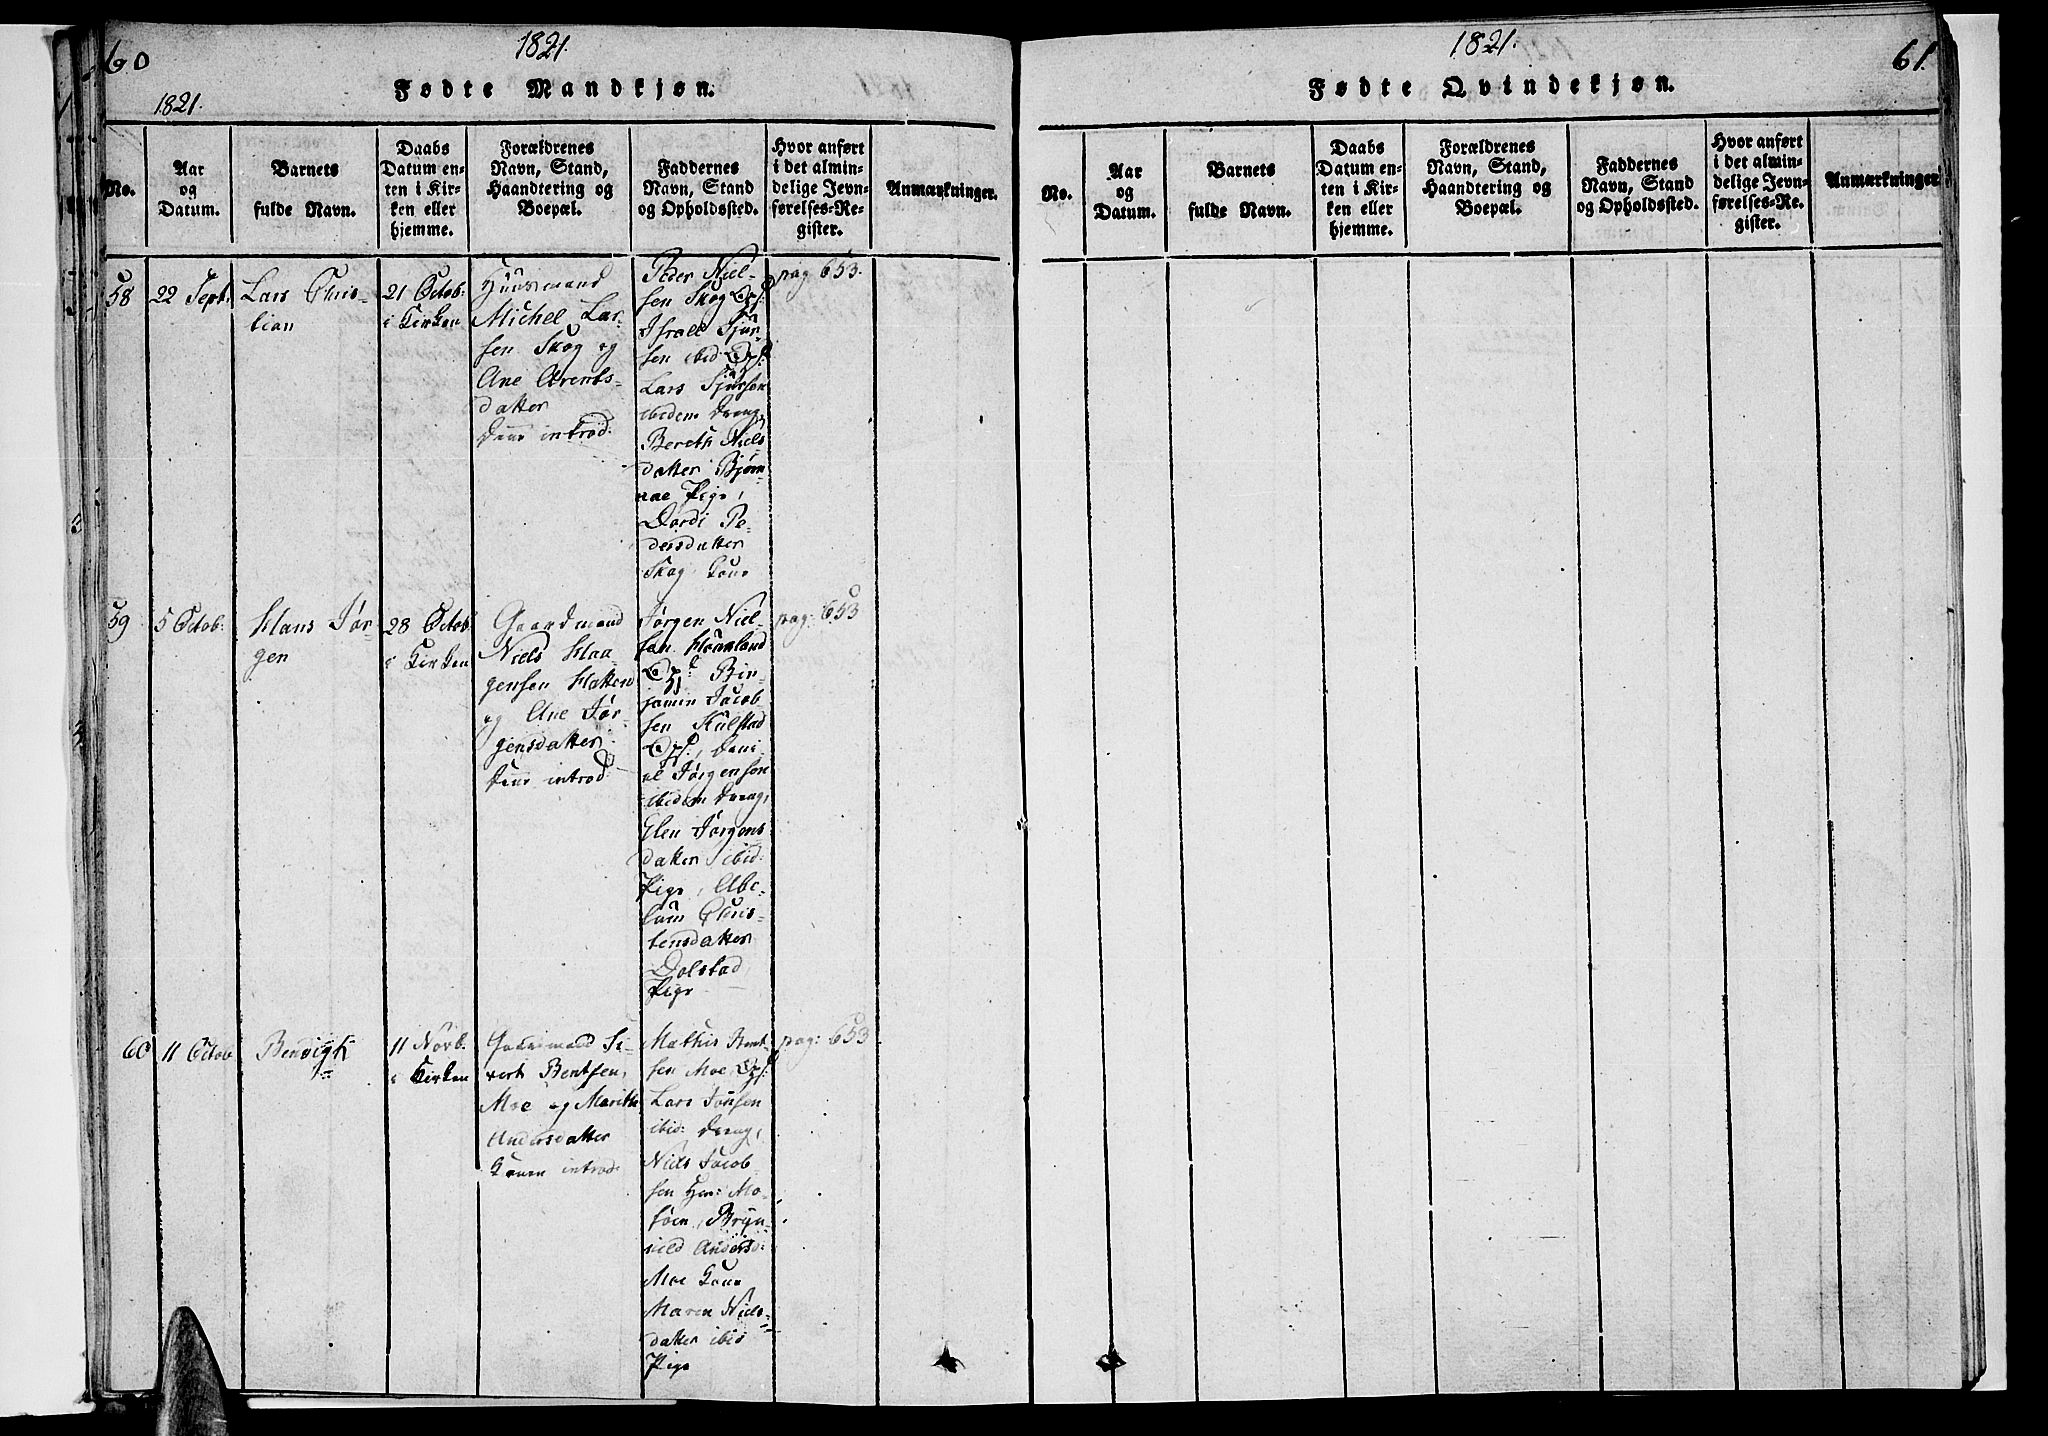 60
1821.
Fødte Mandkjøn.
1821.
No.
Aar
og
Datum.
Barnets
fulde Navn.
Daabs
Datum en-
ten i Kir-
ken eller
hjemme.
Forældrenes
Navn, Stand,
Haandtering og
Boepæl.
Faddernes
Navn, Stand
og Opholdssted.
Hvor anført
i det almin-
delige Jevn-
førelses-Re-
gister.
Anmærkninger.
58
22 Sept.
Lars Chris-
tian
21 Octob:
i Kirken
Huusmand
Michel Lar-
sen Skog og
Ane Arents-
datter
introd:
Peder Niel-
sen Skog
Israel Sjur-
sen ibid:
Lars Sjursen
ibidem Dreng,
Bereth Niels
datter Bjørn-
aae Pige,
Dordi Pe-
dersdatter
Skog Kone
pag 653.
59
5 Octob:
Hans Jør-
gen
28 Octob:
i Kirken
Gaardmand
Niels Haa-
gensen Hatten
og Ane Jør-
gensdatter
introd:
Jørgen Niel-
sen
Ben-
jamin Jacob
sen Kulstad
Dani-
el Jørgensen
ibidem Dreng,
Elen Jørgens
datter ibid:
Pige, Abe-
lum Chris-
tensdatter
Dolstad,
Pige
pag: 653
60
11 Octob
Bendigt
11 Novb.
i Kirken
Gaardmand Si-
vert Bentsen,
Moe og Marith
Andersdatter
Konen introd:
Mathis Bent-
sen Moe
Lars Jonsen
ibid: Dreng,
Niels Jacob-
sen Mo-
søen, Bryn-
hild Andersd:
Moe Kone
Maren Niels-
datter ibid
Pige
pag: 653
1821.
61.
Fødte Qvindekjøn.
No.
Aar
og
Datum.
Barnets
fulde Navn.
Daabs
Datum en-
ten i Kir-
ken eller
hjemme.
Forældrenes
Navn, Stand,
Haandtering og
Boepæl.
Faddernes
Navn, Stand
og Opholdssted.
Hvor anført
i det almin-
delige Jevn-
førelses-Re-
gister.
Anmærkninger